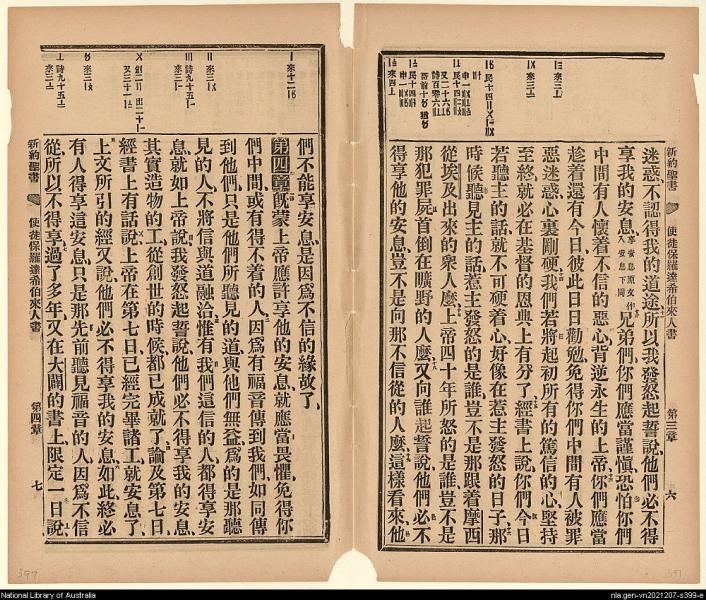 新約聖書 使徒保羅達希伯來人書 第三章 六
迷惑、不認得我的道途、所以我發怒起誓說、他們必不得
享我的安息、兄弟們、你們應當謹愼、恐怕你們
中間有人懷着不信的惡心、背逆永生的上帝、你們應當
趁着還有今日、彼此日日勸勉、免得你們中間有人被罪
惡迷惑、心裏剛硬、我們若將起初所有的篤信的心、堅持
至終、就必在基督的恩典上有分了、經書上說、你們今日
若聽主的話、就不可硬着心、好像在惹主發怒的日子、那
時候聽見主的話、惹主發怒的是誰、豈不是那跟着摩西
從埃及出來的衆人麼、上帝四十年所怒的是誰、豈不是
那犯罪屍首倒在曠野的人麼、又向誰起誓說、他們必不
得享他的安息、豈不是向那不信從的人麼、這樣看來、他
們不能享安息、是因爲不信的緣故了、
第四章旣蒙上帝應許享他的安息、就應當畏懼、免得你
們中間或有得不着的人、因爲有福音傳到我們、如同傳
到他們、只是他們所聽見的道、與他們無益、爲的是那聽
見的人、不將信與道融洽、惟有我們這信的人、都得享安
息、就如上帝說、我發怒起誓說、他們必不得享我的安息、
其實造物的工、從創世的時候、都已成就了、論及第七日、
經書上有話說、上帝在第七日已經完畢諸工、就安息了、
上文所引的經又說、他們必不得享我的安息、如此、終必
有人得享這安息、只是那先前聽見福音的人、因爲不信
從、所以不得享、過了多年、又在大闢的書上、限定一日、說、
新約聖書 使徒保羅達希伯來人書 第四章 七
397
397
National Library of Australia
nla.gen-vn2021207-s399-e